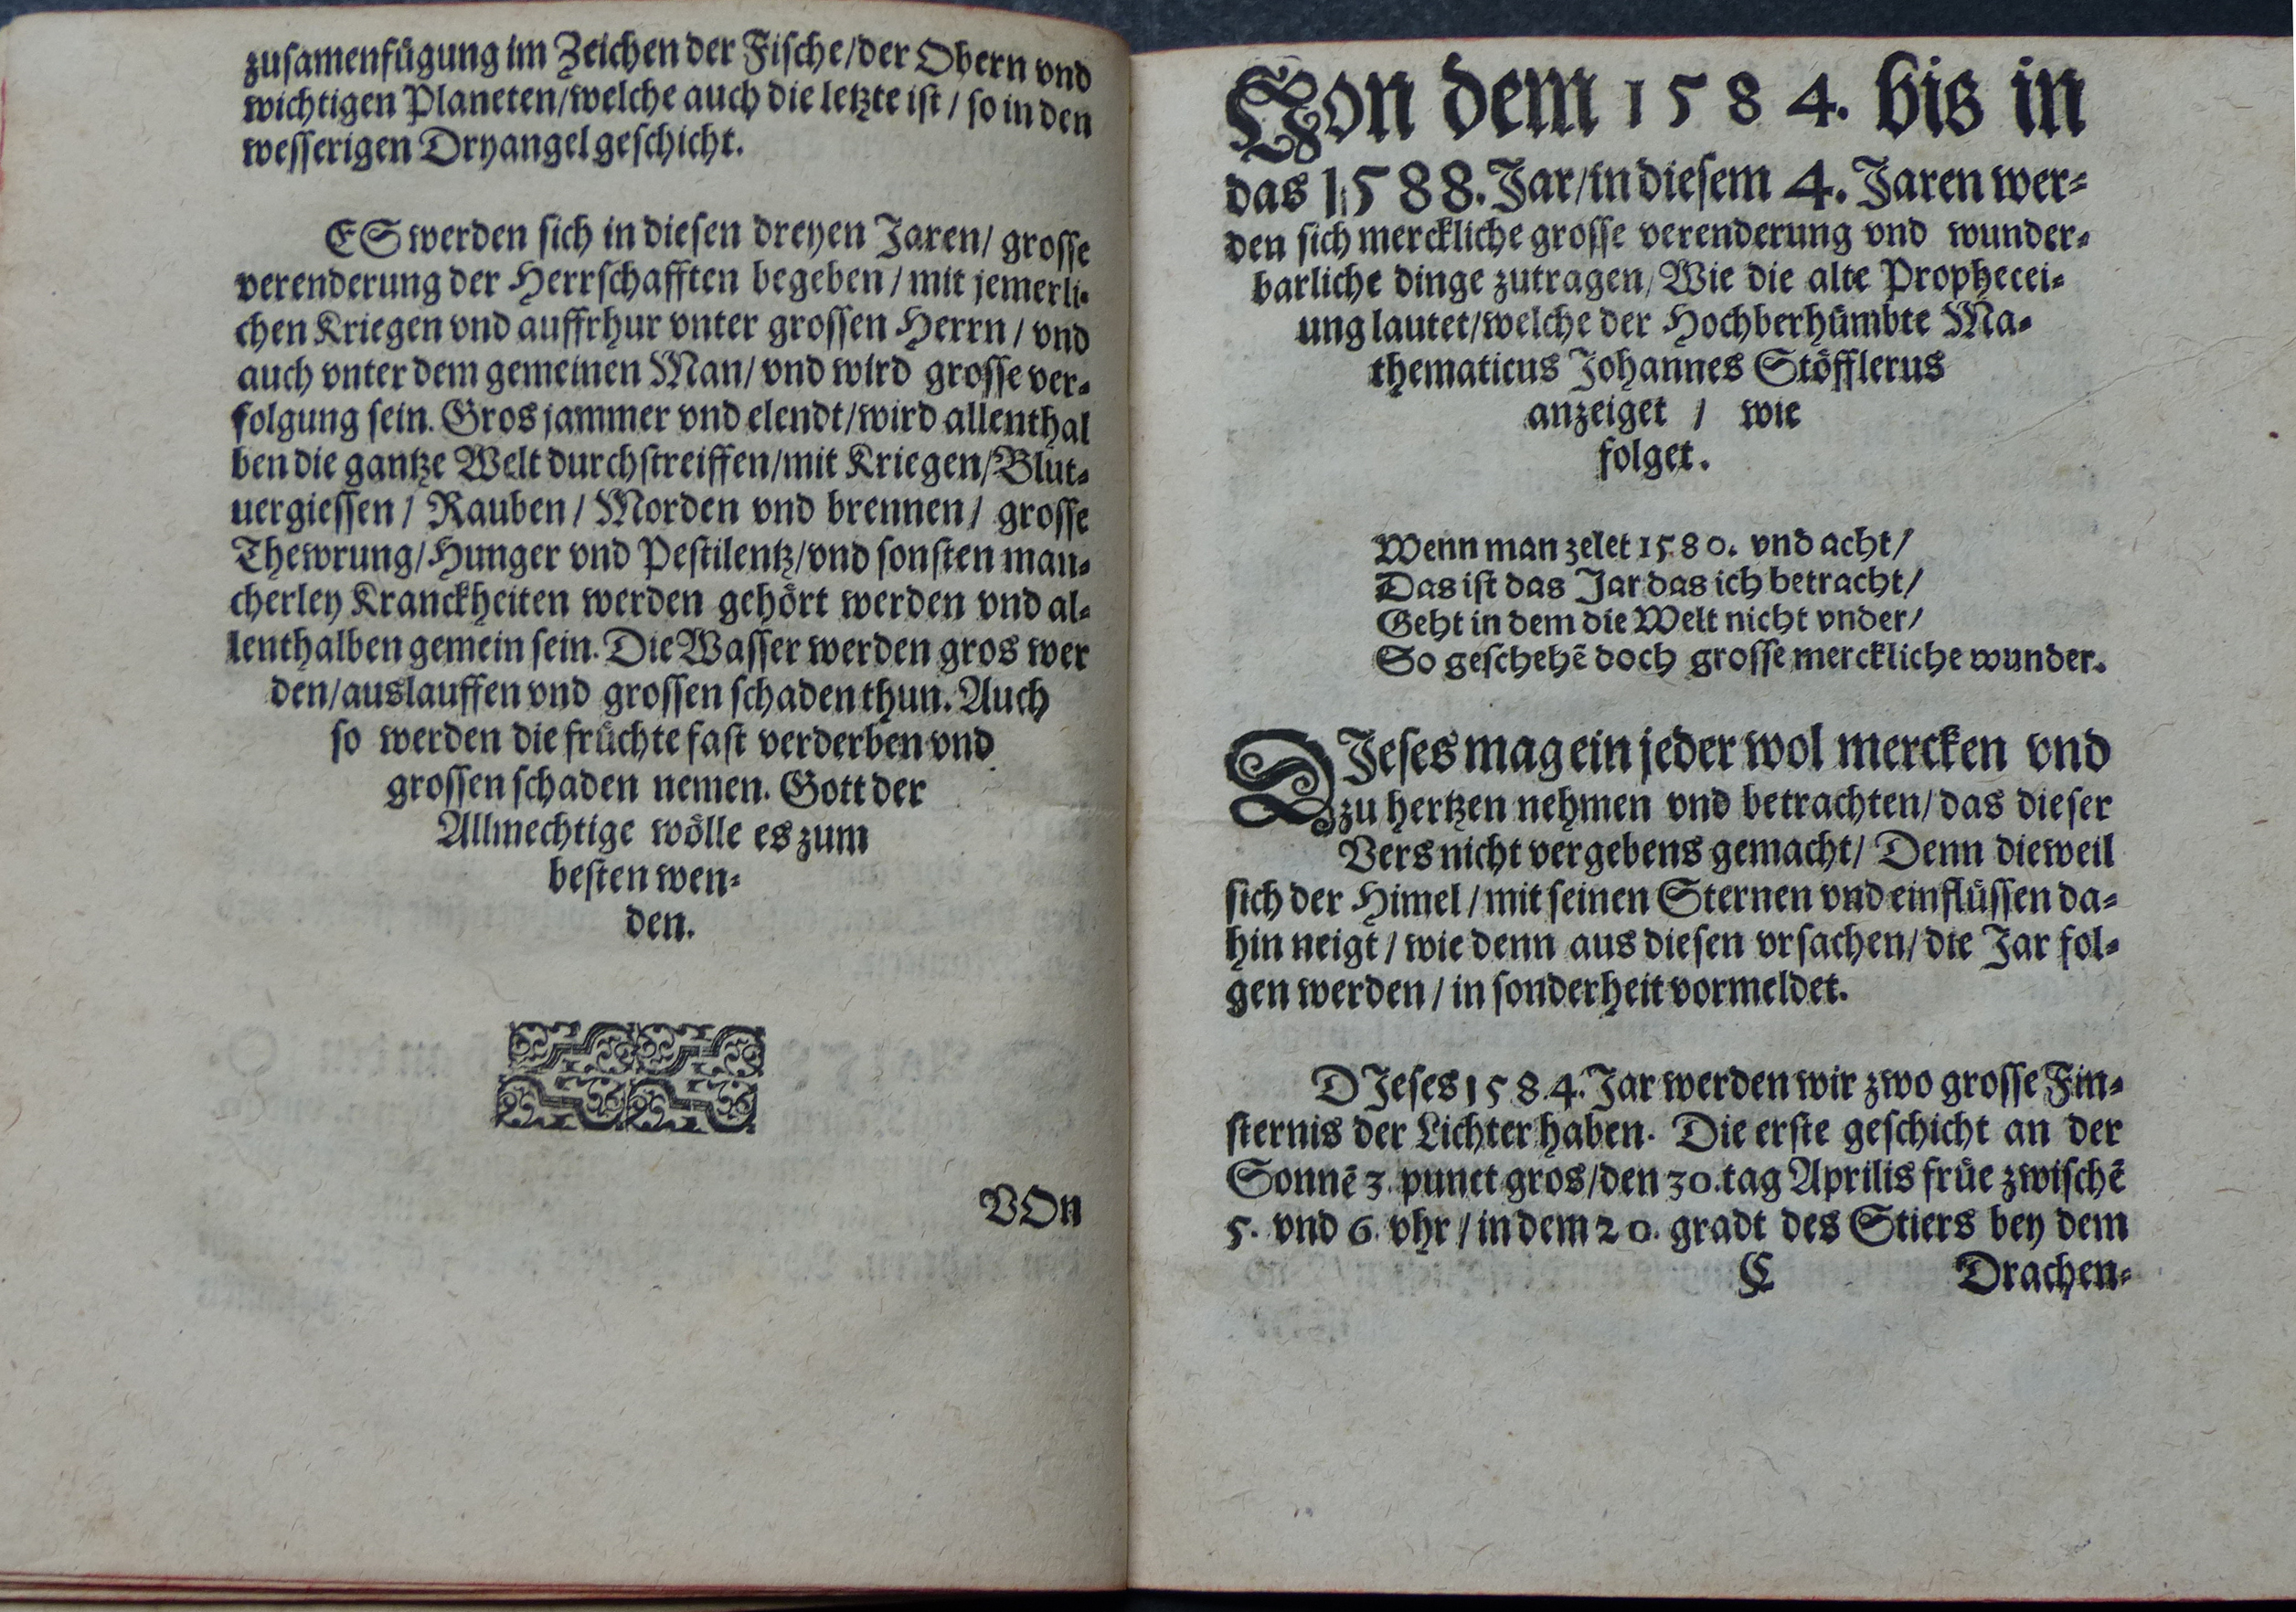 zusamenfügung im Zeichen der Fische/der Obern vnd
wichtigen Planeten/welche auch die letzte ist / so in den
wesserigen Dryangel geschicht.
ES werden sich in diesen dreyen Jaren/ grosse
verenderung der Herrschafften begeben / mit jemerli-
chen Kriegen vnd auffrhur vnter grossen Herrn / vnd
auch vnter dem gemeinen Man/ vnd wird grosse ver-
folgung sein. Gros jammer vnd elendt/wird allenthal
ben die gantze Welt durchstreiffen/mit Kriegen/Blut-
uergiessen / Rauben / Morden vnd brennen / grosse
Thewrung/Hunger vnd Pestilentz/vnd sonsten man-
cherley Kranckheiten werden gehört werden vnd al-
lenthalben gemein sein. Die Wasser werden gros wer
den/auslauffen vnd grossen schaden thun. Auch
so werden die früchte fast verderben vnd
grossen schaden nemen. Gott der
Allmechtige wölle es zum
besten wen-
den.
VOn
Von dem 1584. bis in
das 1588. Jar/in diesem 4. Jaren wer-
den sich merckliche grosse verenderung vnd wunder-
barliche dinge zutragen/ Wie die alte Prophecei-
ung lautet/welche der Hochberhümbte Ma-
thematicus Johannes Stöfflerus
anzeiget / wie
folget.
Wenn man zelet 1580. vnd acht/
Das ist das Jar das ich betracht/
Geht in dem die Welt nicht vnder/
So geschehē doch grosse merckliche wunder.
DJeses mag ein jeder wol mercken vnd
zu hertzen nehmen vnd betrachten/das dieser
Vers nicht vergebens gemacht/ Denn dieweil
sich der Himel / mit seinen Sternen vnd einflüssen da-
hin neigt / wie denn aus diesen vrsachen/die Jar fol-
gen werden / in sonderheit vormeldet.
DJeses 1584. Jar werden wir zwo grosse Fin-
sternis der Lichter haben. Die erste geschicht an der
Sonnē 3. punct gros/den 30. tag Aprilis früe zwischē
5. vnd 6. vhr / in dem 20. gradt des Stiers bey dem
C Drachen-